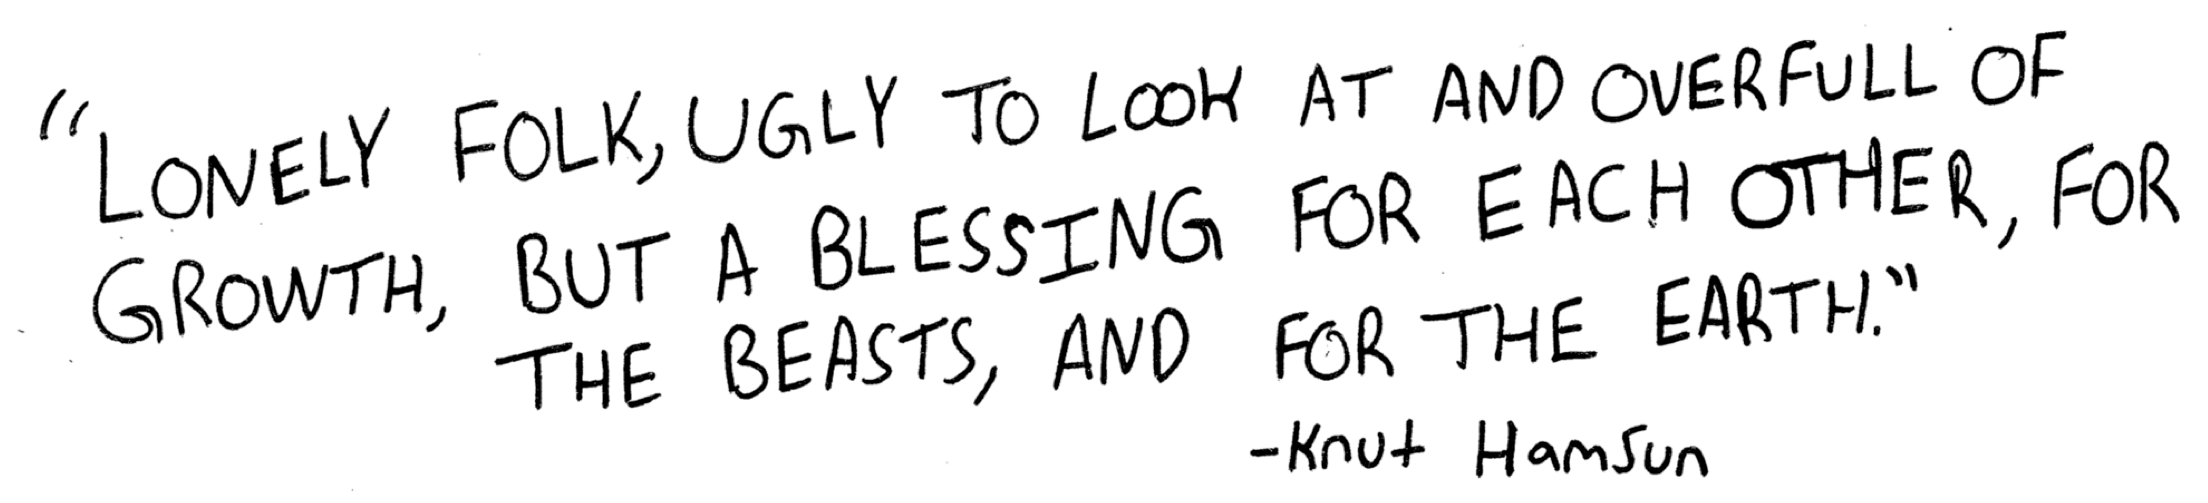 "LONELY FOLK, UGLY TO LOOK AT AND OVERFULL OF
GROWTH, BUT A BLESSING FOR EACH OTHER, FOR
THE BEASTS, AND FOR THE EARTH."
-Knut Hamsun